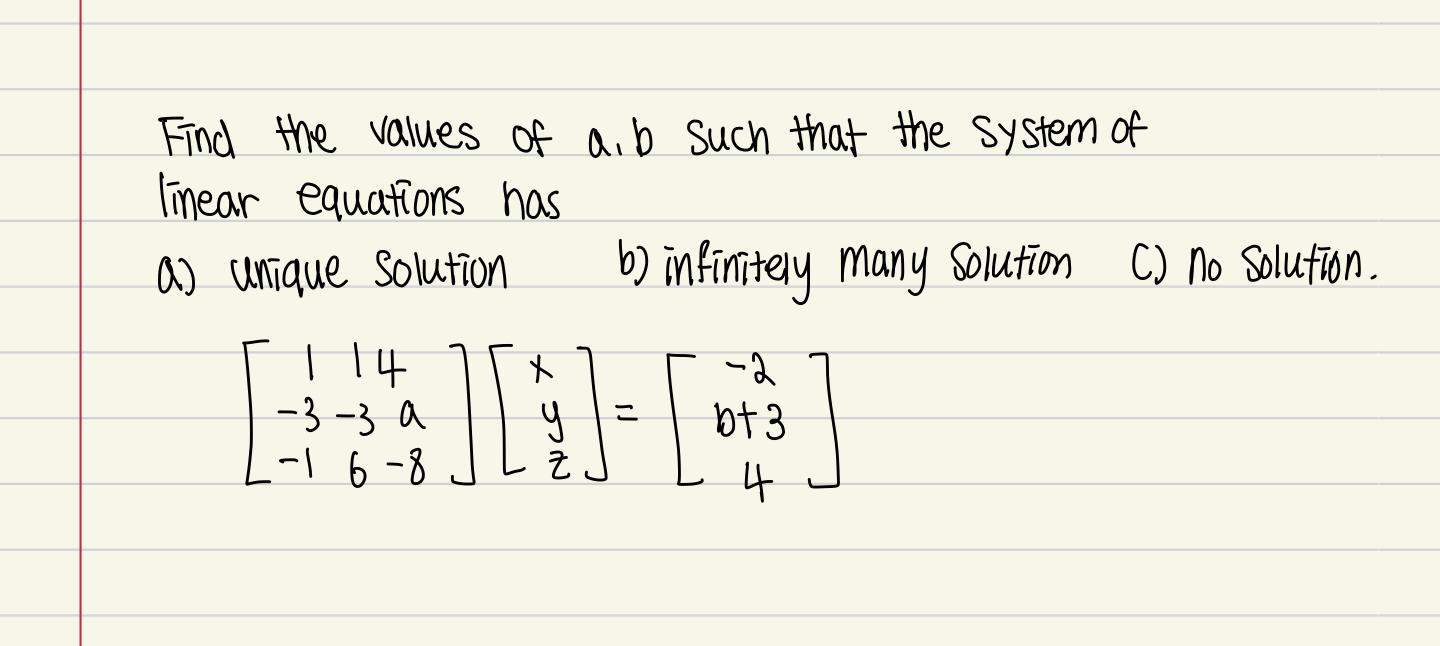 Find the values of a, b such that the system of
linear equations has
a) unique solution b) infinitely many solution c) no solution.
[ 1 1 4 ] [ x ] = [ -2 ]
[ -3 -3 a ] [ y ] [ b+3 ]
[ -1 6 -8 ] [ z ] [ 4 ]